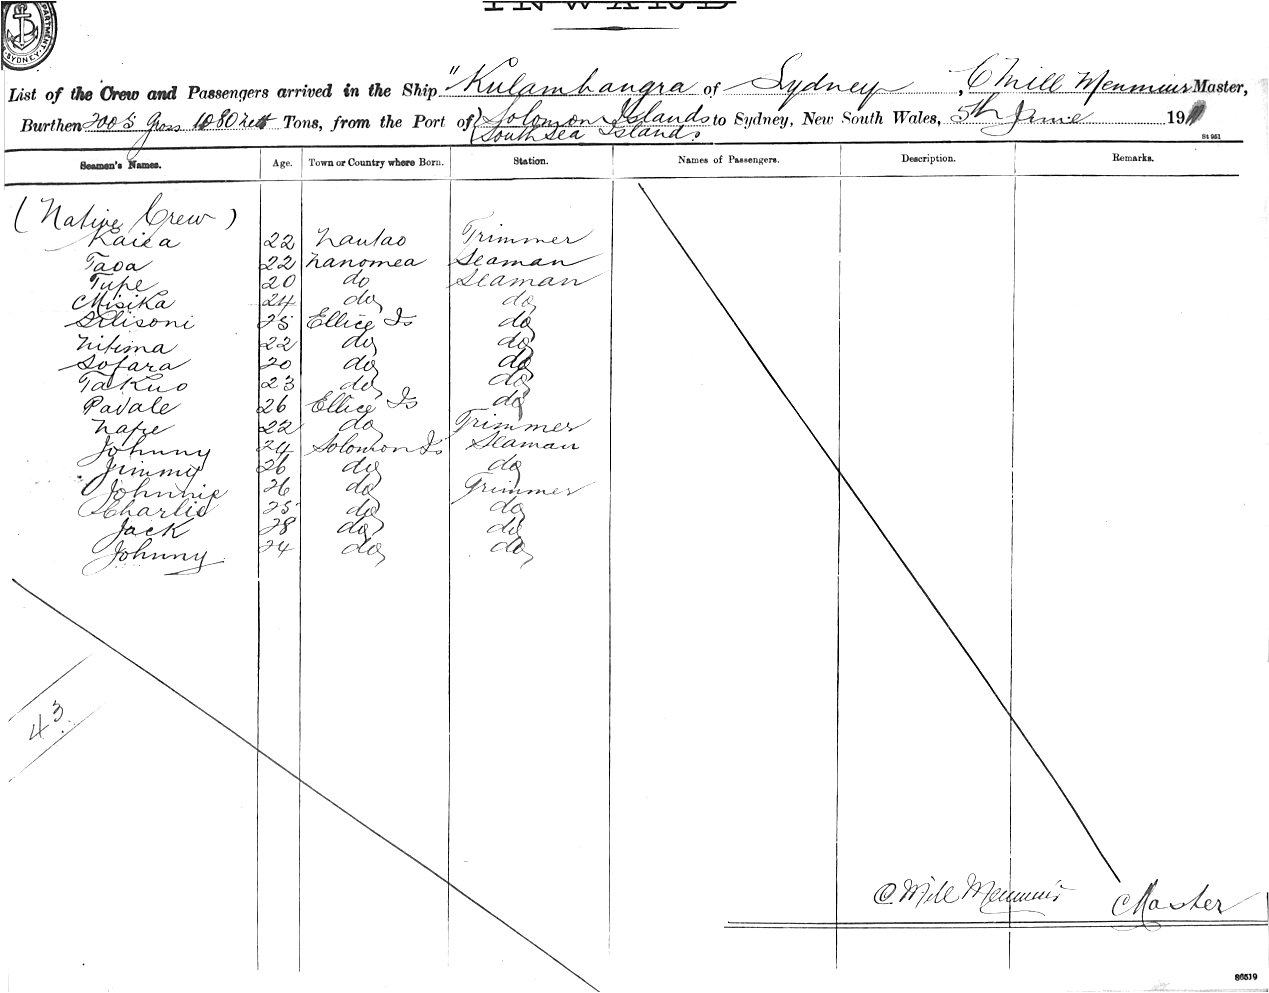 INWARD
PARTMENT. SYDNEY.
List of the Crew and Passengers arrived in the Ship "Kulambangra of Sydney, C Mill Menmuir Master,
Burthen 2005 Gross 1080 nett Tons, from the Port of Solomon Islands to Sydney, New South Wales, 5th June 191
South Sea Islands.
St 961
Seamen's Names. Age. Town or Country where Born. Station. Names of Passengers. Description. Remarks.
(Native Crew)
Kaiea 22 Nautao Trimmer
Taoa 22 Nanomea Seaman
Tupe 20 do Seaman
Misika 24 do do
Silisoni 25 Ellice Is do
Nitima 22 do do
Sofara 20 do do
Takuo 23 do do
Pavale 26 Ellice Is do
Nape 22 do Trimmer
Johnny 24 Solomon Is Seaman
Jimmy 26 do do
Johnnie 26 do Trimmer
Charlie 25 do do
Jack 28 do do
Johnny 24 do do
43
C Mill Menmuir Master
86519